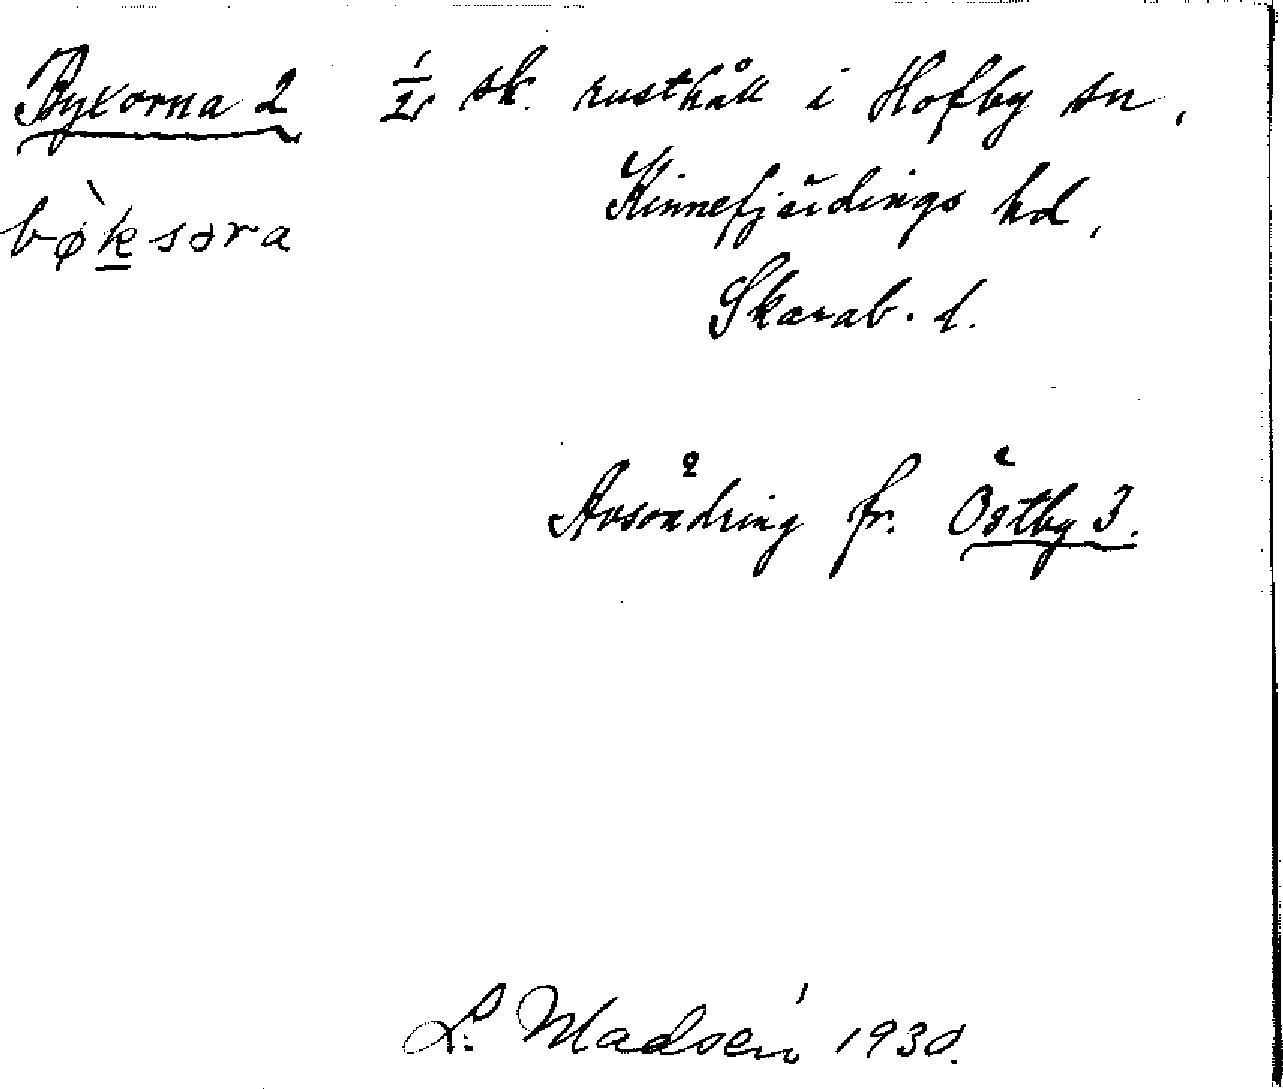 Byxorna 2 1/2 sk. rusthåll i Hofby sn,
bø̀k̲səra Kinnefjärdings hd,
Skarab. l.
Avsöndring fr. Östby 3.
L. Madsén 1930.